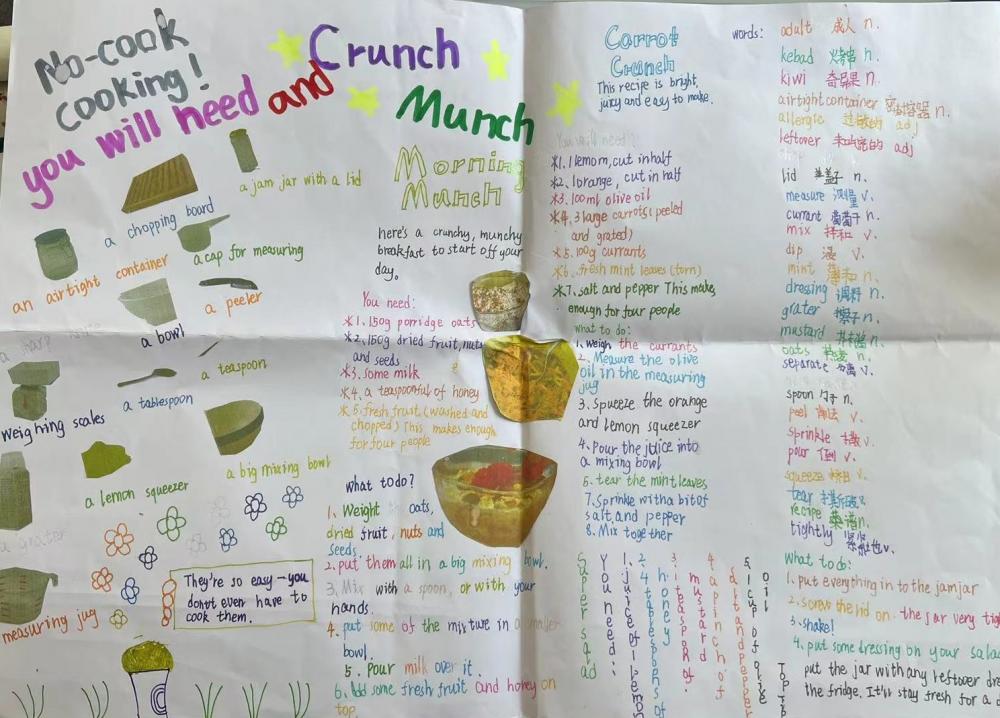 No-cook
cooking!
you will need and
Crunch
Munch
a jam jar with a lid
a chopping board
a cap for measuring
an airtight container
a peeler
a bowl
a teaspoon
a tablespoon
weighing scales
a big mixing bowl
a lemon squeezer
a grater
measuring jug
They're so easy—you
don't even have to
cook them.
Morning
Munch
here's a crunchy, munchy
breakfast to start off your
day.
You need:
*1. 150g porridge oats
*2. 150g dried fruit, nuts
and seeds
*3. some milk
*4. a teaspoonful of honey
*5. fresh fruit (washed and
chopped) This makes enough
for four people
what to do?
1. Weight oats,
dried fruit, nuts and
seeds.
2. put them all in a big mixing bowl.
3. Mix with a spoon, or with your
hands.
4. put some of the mixture in a smaller
bowl.
5. Pour milk over it.
6. Add some fresh fruit and honey on
top.
Carrot
Crunch
This recipe is bright,
juicy and easy to make.
You will need:
*1. 1 lemom, cut in half
*2. 1 orange, cut in half
*3. 100ml olive oil
*4. 3 large carrots (peeled
and grated)
*5. 100g currants
*6. fresh mint leaves (torn)
*7. salt and pepper This makes
enough for four people
what to do:
1. Weigh the currants
2. Measure the olive
oil in the measuring
jug
3. Squeeze the orange
and lemon squeezer
4. Pour the juice into
a mixing bowl
5. tear the mint leaves
7. Sprinkle with a bit of
salt and pepper
8. Mix together
You need:
1. juice of 1 lemon
2. 4 tablespoons of
honey
3. 1 teaspoon of
mustard
4. a pinch of
salt and pepper
5. 1 cup of olive
oil
TOP TIP
words:
adult 成人 n.
kebad 烤串 n.
kiwi 奇异果 n.
airtight container 密封容器 n.
allergic 过敏的 adj
leftover 未吃完的 adj
lid 盖子 n.
measure 测量 v.
currant 葡萄干 n.
mix 拌和 v.
dip 浸 v.
mint 薄荷 n.
dressing 调料 n.
grater 擦子 n.
mustard 芥末 n.
oats 燕麦 n.
separate 分离 v.
spoon 勺子 n.
peel 削皮 v.
sprinkle 撒 v.
pour 倒 v.
squeeze v.
tear v.
recipe 菜谱 n.
tightly
What to do:
1. put everything in to the jamjar
2. screw the lid on the jar very
3. shake!
4. put some dressing on your
put the jar with any leftover
the fridge. It'll stay fresh for a